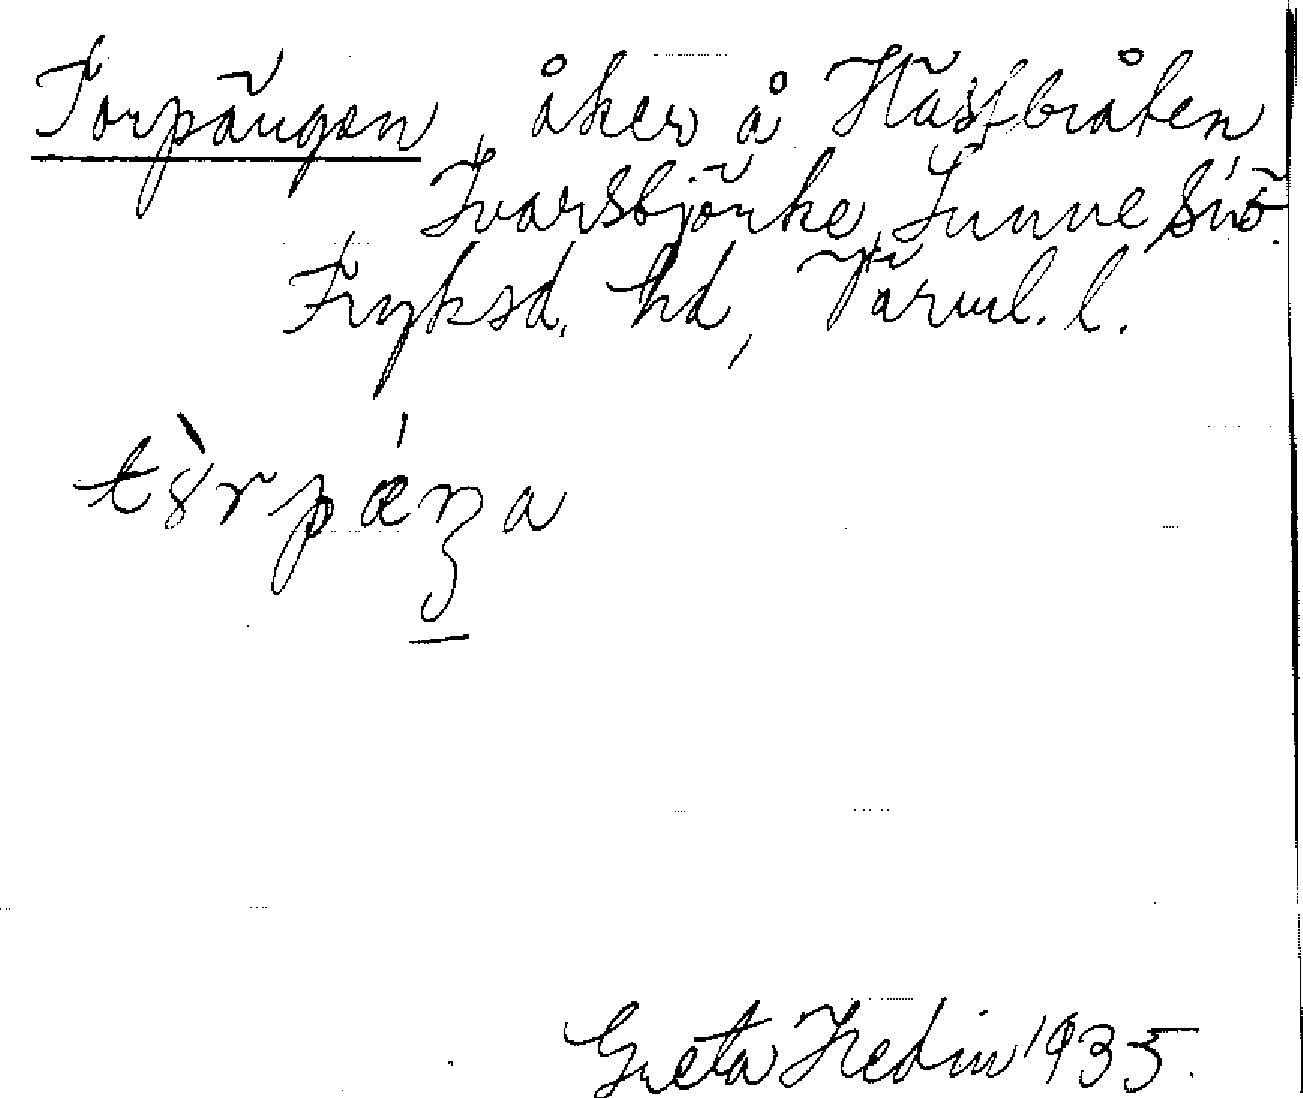 Torpängen, åker å Hästbråten
Ivarsbjörke, Sunne
Fryksd. hd, Värml. l.
Greta Hedin 1935.